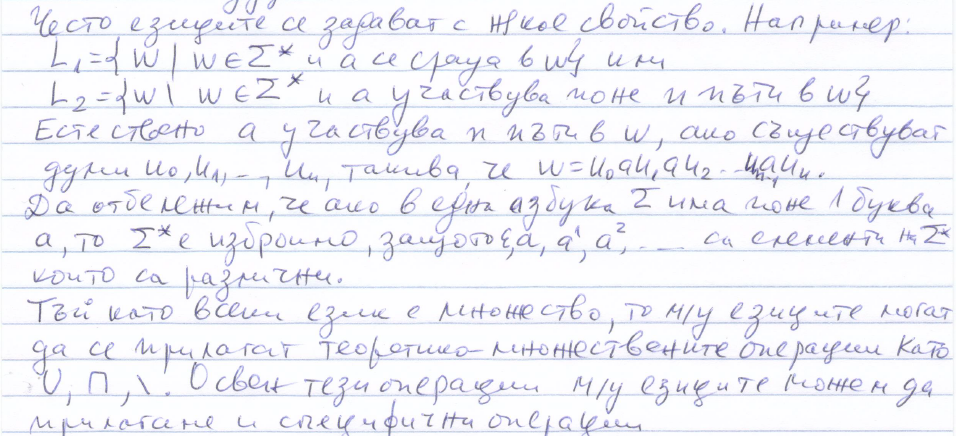 Често езиците се задават с някое свойство. Например:
L₁={w | w ∈ Σ* и a се среща в w} или
L₂={w | w ∈ Σ* и a участвува поне n пъти в w}
Естествено a участвува n пъти в w, ако съществуват
думи u₀, u₁, ..., uₙ, такива, че w=u₀au₁au₂...uₙ₋₁auₙ.
Да отбележим, че ако в една азбука Σ има поне 1 буква
a, то Σ* е изброимо, защото ε, a, a¹, a², ... са елементи на Σ*
които са различни.
Тъй като всеки език е множество, то м/у езиците могат
да се прилагат теоретико-множествените операции като
∪, ∩, \. Освен тези операции м/у езиците можем да
прилагаме и специфични операции